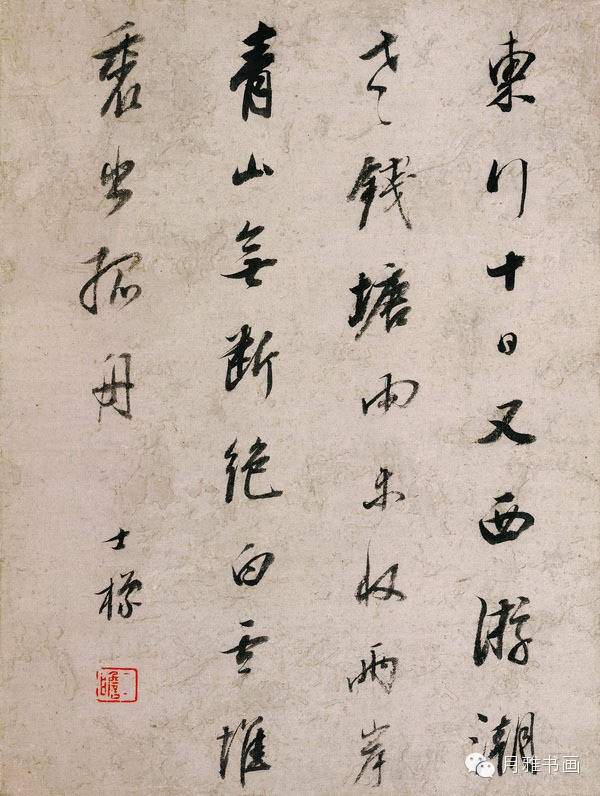 東行十日又西游潮
錢塘雨未收兩岸
青山無斷絶白雲堆
裏出孤舟
士標
二瞻
月雅书画